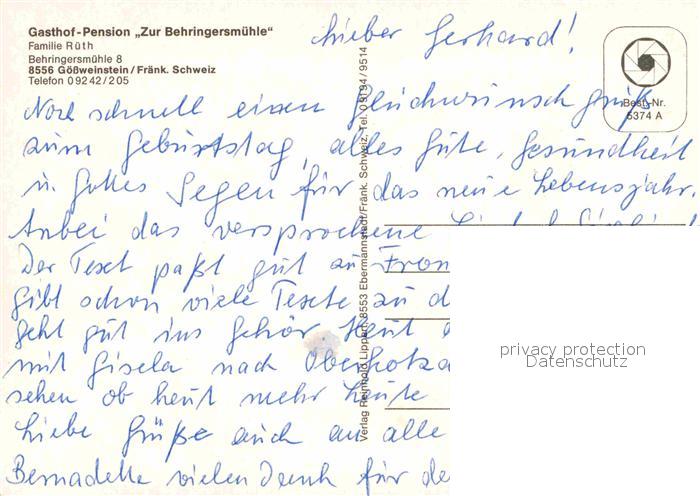 Gasthof-Pension „Zur Behringersmühle"
Familie Rüth
Behringersmühle 8
8556 Gößweinstein / Fränk. Schweiz
Telefon 0 92 42 / 2 05
Best.-Nr.
5374 A
Verlag Reinhold Lippert, 8553 Ebermannstadt/Fränk. Schweiz, Tel. 0 91 94 / 95 14
Lieber Gerhard!
Noch schnell einen Glückwunschgruß
zum Geburtstag, alles Gute, Gesundheit
u. Gottes Segen für das neue Lebensjahr.
Anbei das versprochene
Der Text paßt gut zu Fron
gibt schon viele Texte zu d
geht gut ins Gehör. Heut
mit Gisela nach Oberhotza
sehen ob heut mehr Leute
Liebe Grüße auch an alle
Bernadette vielen Dank für de
privacy protection
Datenschutz